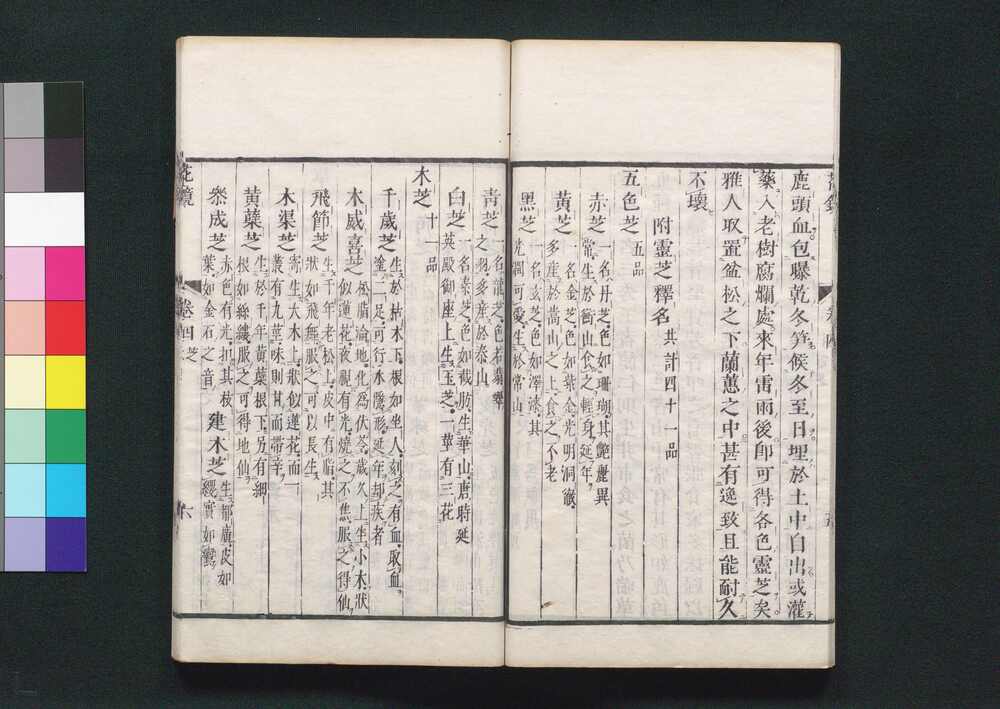 鹿頭血包曝乾冬笋候冬至日埋於土中自出或灌
藥入老樹腐爛處來年雷雨後卽可得各色靈芝矣
雅人取置盆松之下蘭蕙之中甚有逸致且能耐久
不壞
附靈芝釋名 共計四十一品
五色芝 五品
赤芝 一名丹芝色如珊瑚其艷麗異
常生於衡山食之輕身延年
黃芝 一名金芝色如紫金光明洞徹
多産於嵩山之上食之不老
黑芝 一名玄芝色如澤漆其
光潤可愛生於常山
青芝 一名龍芝色若翠
之羽多産於泰山
白芝 一名素芝色如截肪生華山唐時延
英殿御座上生玉芝一莖有三花
木芝 十一品
千歲芝 生於枯木下根如坐人刻之有血取血
塗二足可行水隱形延年却疾者
木威喜芝 松脂淪地化爲伏苓歲久上生小木狀
似蓮花夜視有光燒之不焦服之得仙
飛節芝 生千年老松上皮中有脂其
狀如飛無服之可以長生
木渠芝 寄生大木上狀似蓮花而一
叢有九莖味則甘而帶辛
黃蘗芝 生於千年黃蘗根下另有細
根如絲縷服之可得地仙
參成芝 赤色有光扣其枝
葉如金石之音
建木芝 生都廣皮如
纓實如鸞
花鏡
卷四 芝
六